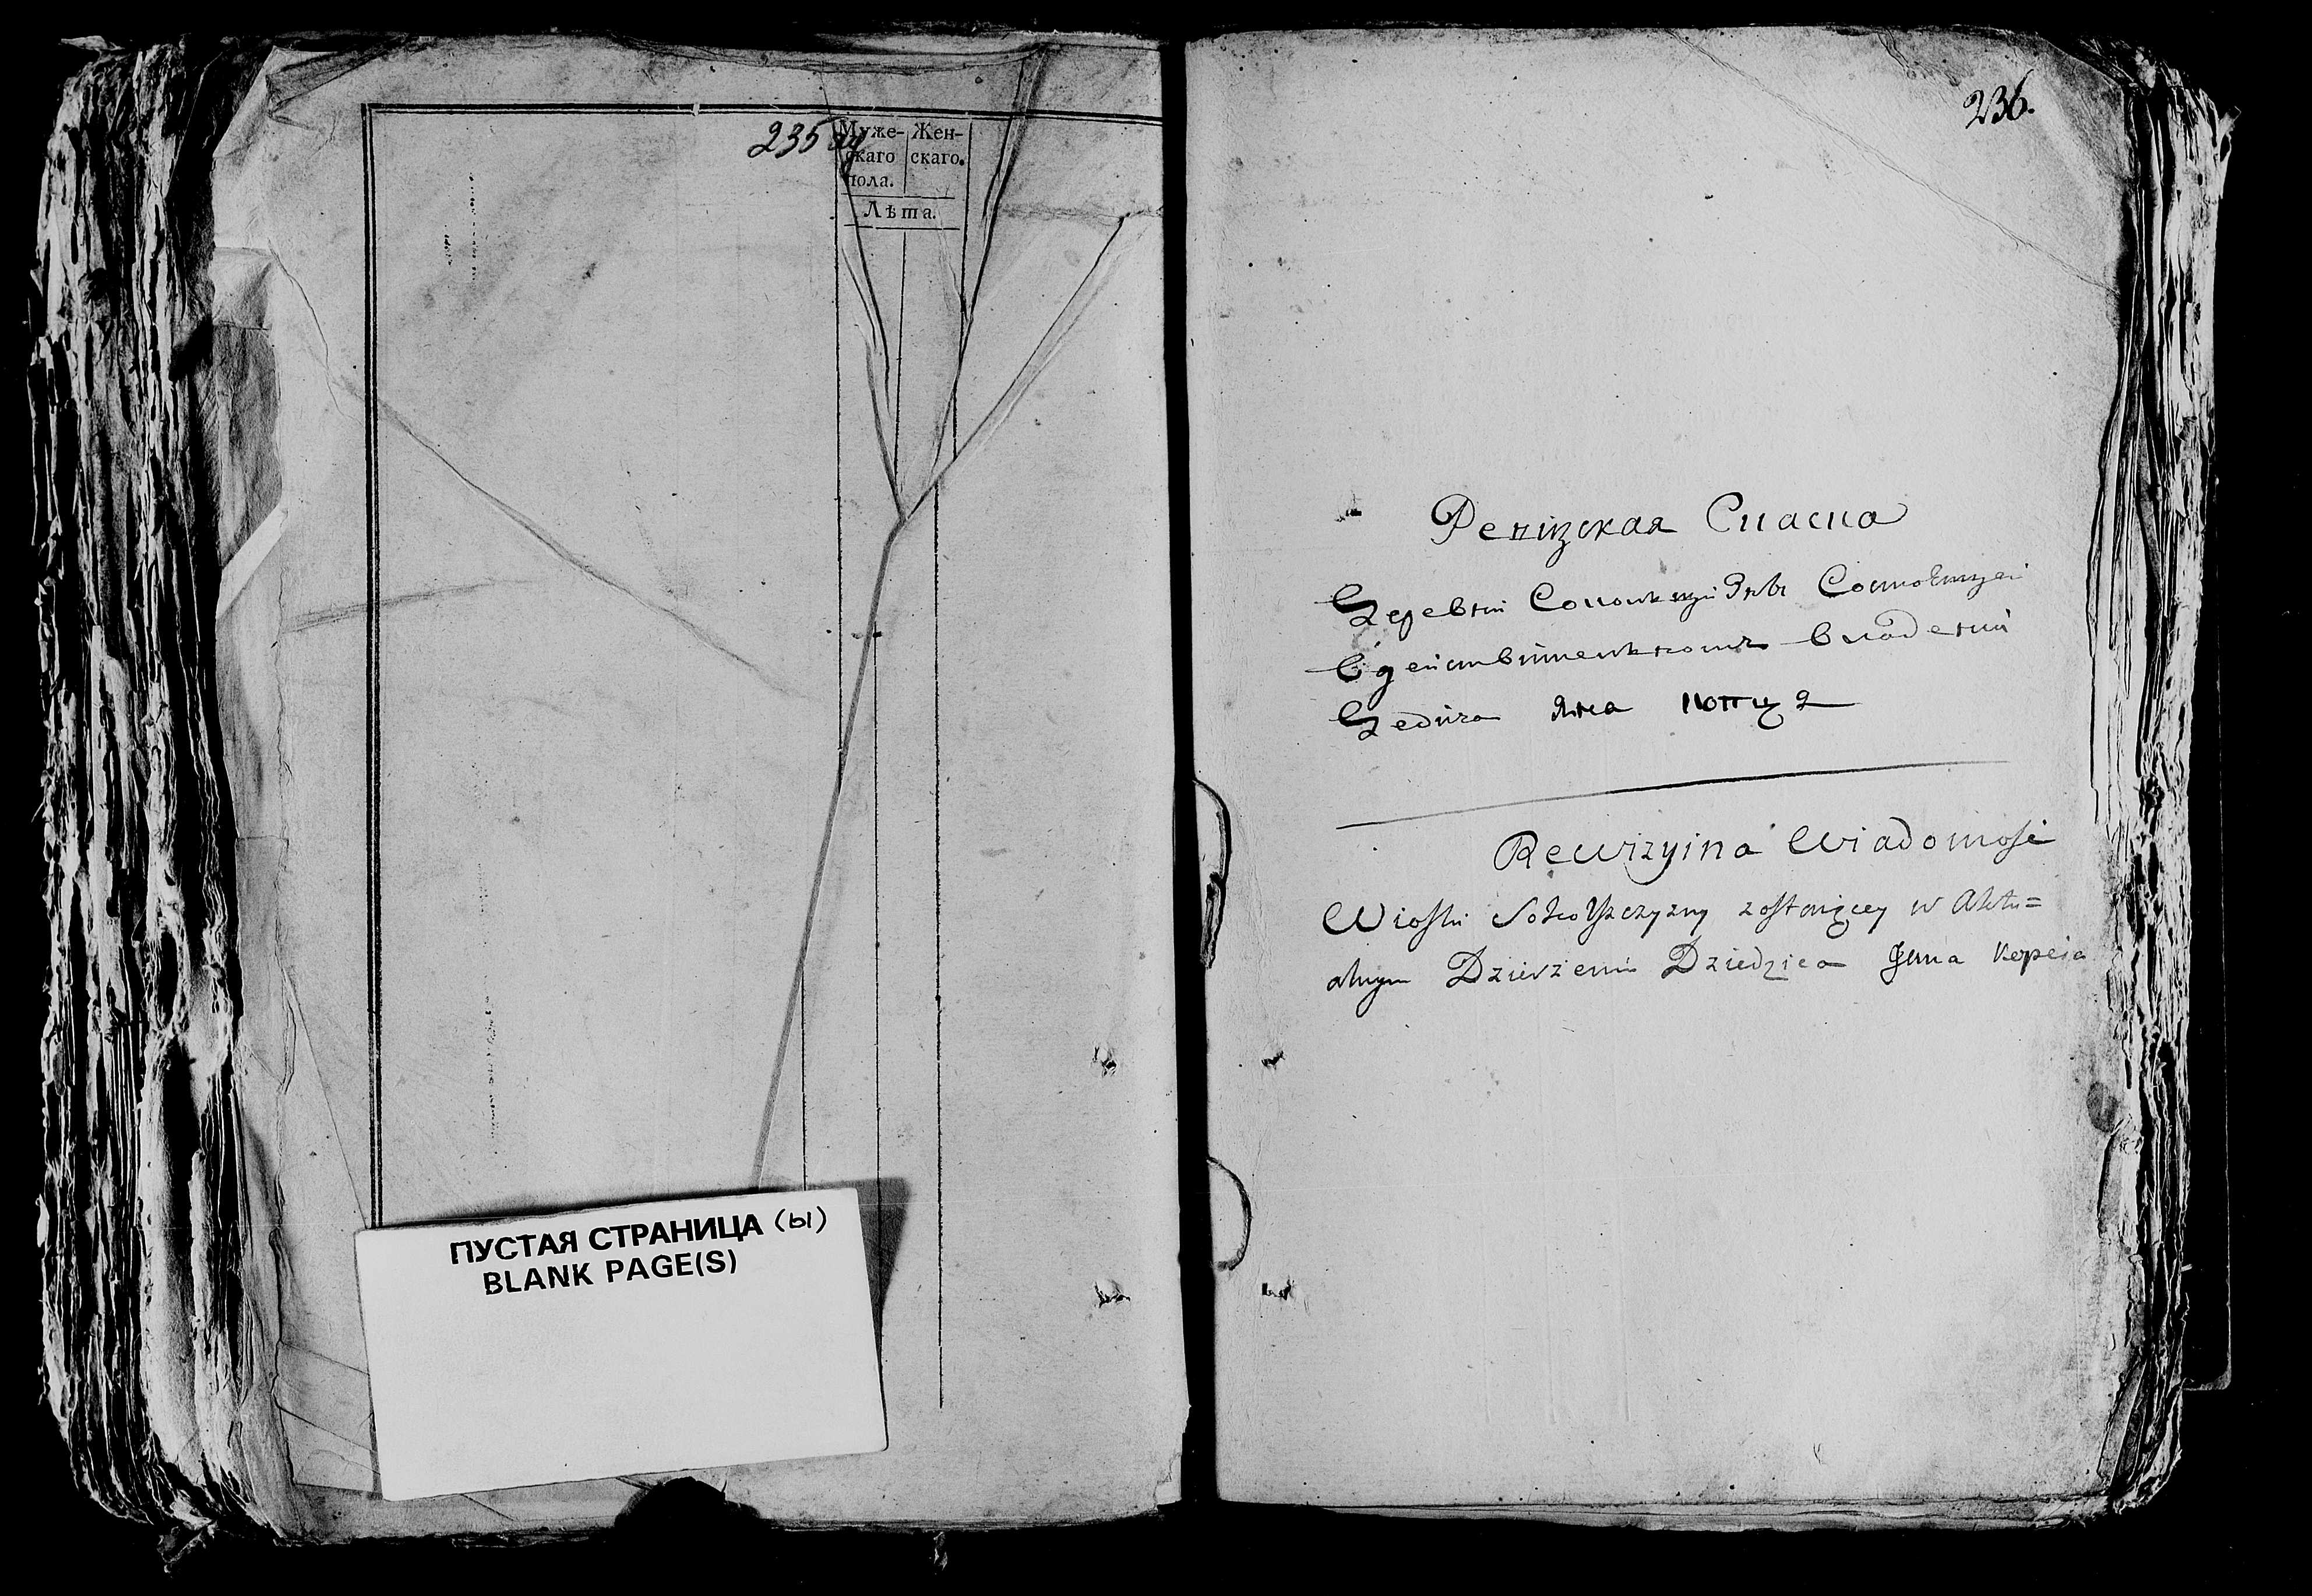 235
Муже-
скаго
пола.
Жен-
скаго.
Лѣта.
ПУСТАЯ СТРАНИЦА (Ы)
BLANK PAGE(S)
236.
Ревизская Сказка
Деревни Состоящей
В действительномъ владении
Дедича Яна
Rewizyina Wiadomość
Wioski zostaiącey w Aktu=
alnym Dzierżeniu Dziedzica Jana Kopcia